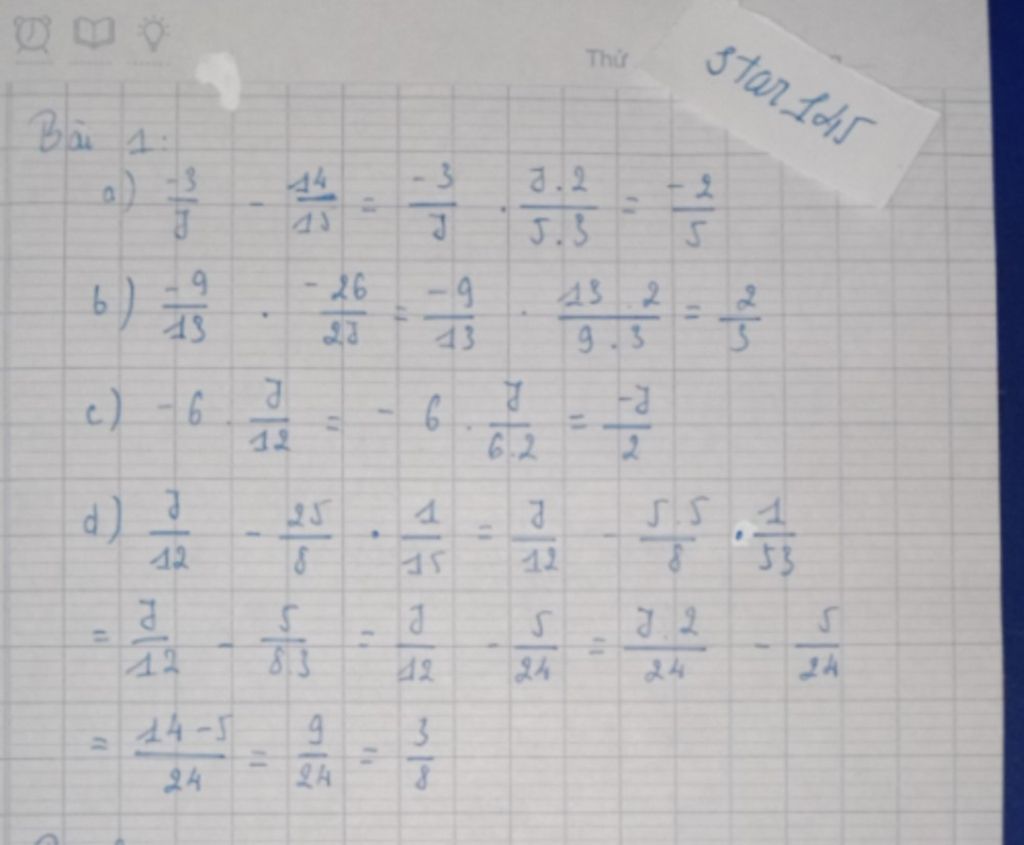 Thứ
star145
Bài 1:
a) -3/7 - 14/15 = -3/7 . 7.2/5.3 = -2/5
b) -9/13 . -26/27 = -9/13 . 13.2/9.3 = 2/3
c) -6 . 7/12 = - 6 . 7/6.2 = -7/2
d) 7/12 - 25/8 . 1/15 = 7/12 - 5.5/8 . 1/53
= 7/12 - 5/8.3 = 7/12 - 5/24 = 7.2/24 - 5/24
= 14-5/24 = 9/24 = 3/8